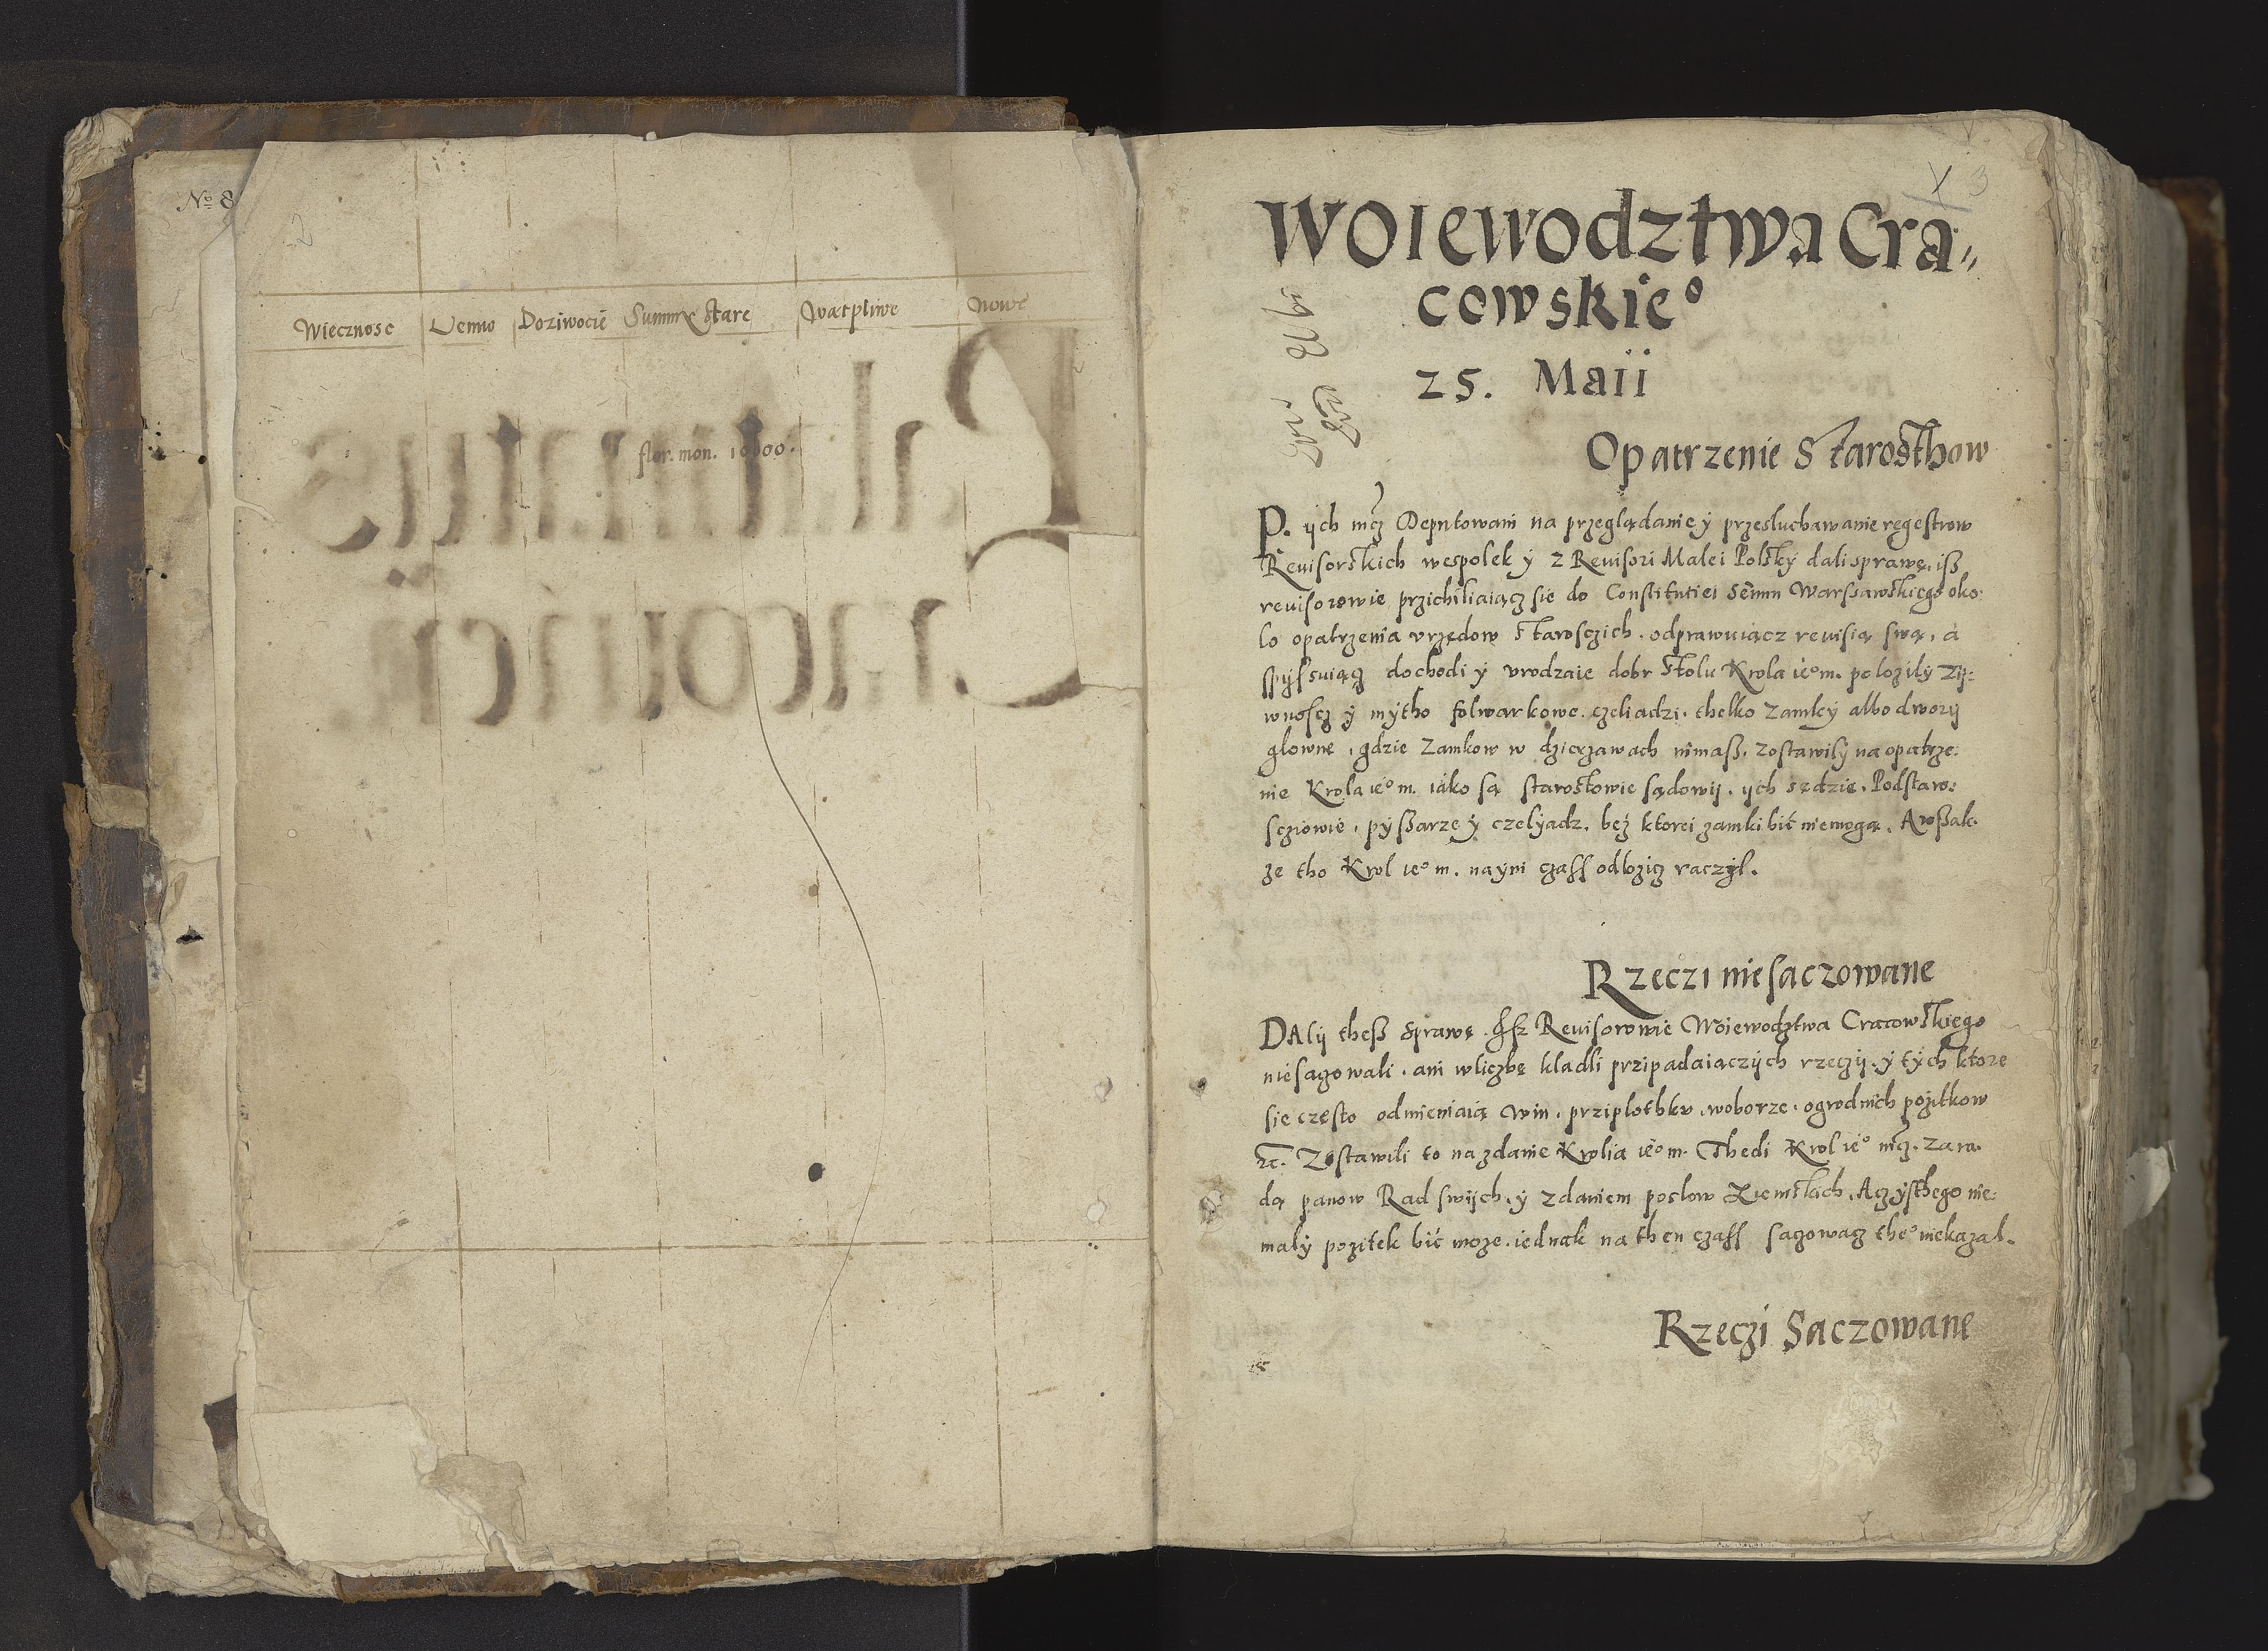 Nº 8
2
Wiecznosc Uemo Doziwocie Summy stare Wætpliwe Nowe
flor. mon. 10000.
Palatinatus
Cracovien
3
Woiewodztwa Cra„
cowskieº
25. Maii
Opatrzenie Starosthow
P. ych mcz Deputowani na przeglądanie y przesluchawanie regestrow
Reuisorskich wespolek y z Reuisori Malei Polsky dali sprawę, iß
reuisorowie przichiliaiącz sie do Constitutiei Semu Warsawskiego oko:
lo opatrzenia vrzędow starosczich. odprawuiącz reuisią swą, a
spÿsuiącz dochodi y vrodzaie dobr stolu Krola ieº m. polozily zÿ:
wnoscz y mÿtho folwarkowe. czeliadzi. thelko zamky albo dworÿ
glowne, gdzie zamkow w dzierzawach nimaß. zostawily na opatrze:
nie Krola ieº m. iako są starostowie sądowÿ. ÿch sędzie. Podstaro:
sczowie, pÿßarze y czelÿadz. bez ktorei zamki bić niemogą. A woßak:
ze tho Krol ieº m. na ÿni czass odlozicz raczÿl.
Rzeczi nie saczowane
DAlÿ theß sprawę. Reuisorowie Woiewodztwa Cracowskiego
nie sacowali. ani w liczbę kladli przipadaiączÿch rzeczÿ. y tÿch ktore
sie często odmieniaią win. prziplothkv. woborze. ogrodnich pozitkow
zc. Zostawili to na zdanie Krolia ieº m. Thedi Krol ieº mcz. za ra:
dą panow Rad swÿch. y zdaniem poslow Ziemskich. Acz ÿsthego nie:
malÿ pozitek bić moze. iednak na then czass sacowacz theº niekazal.
Rzeczi Saczowane